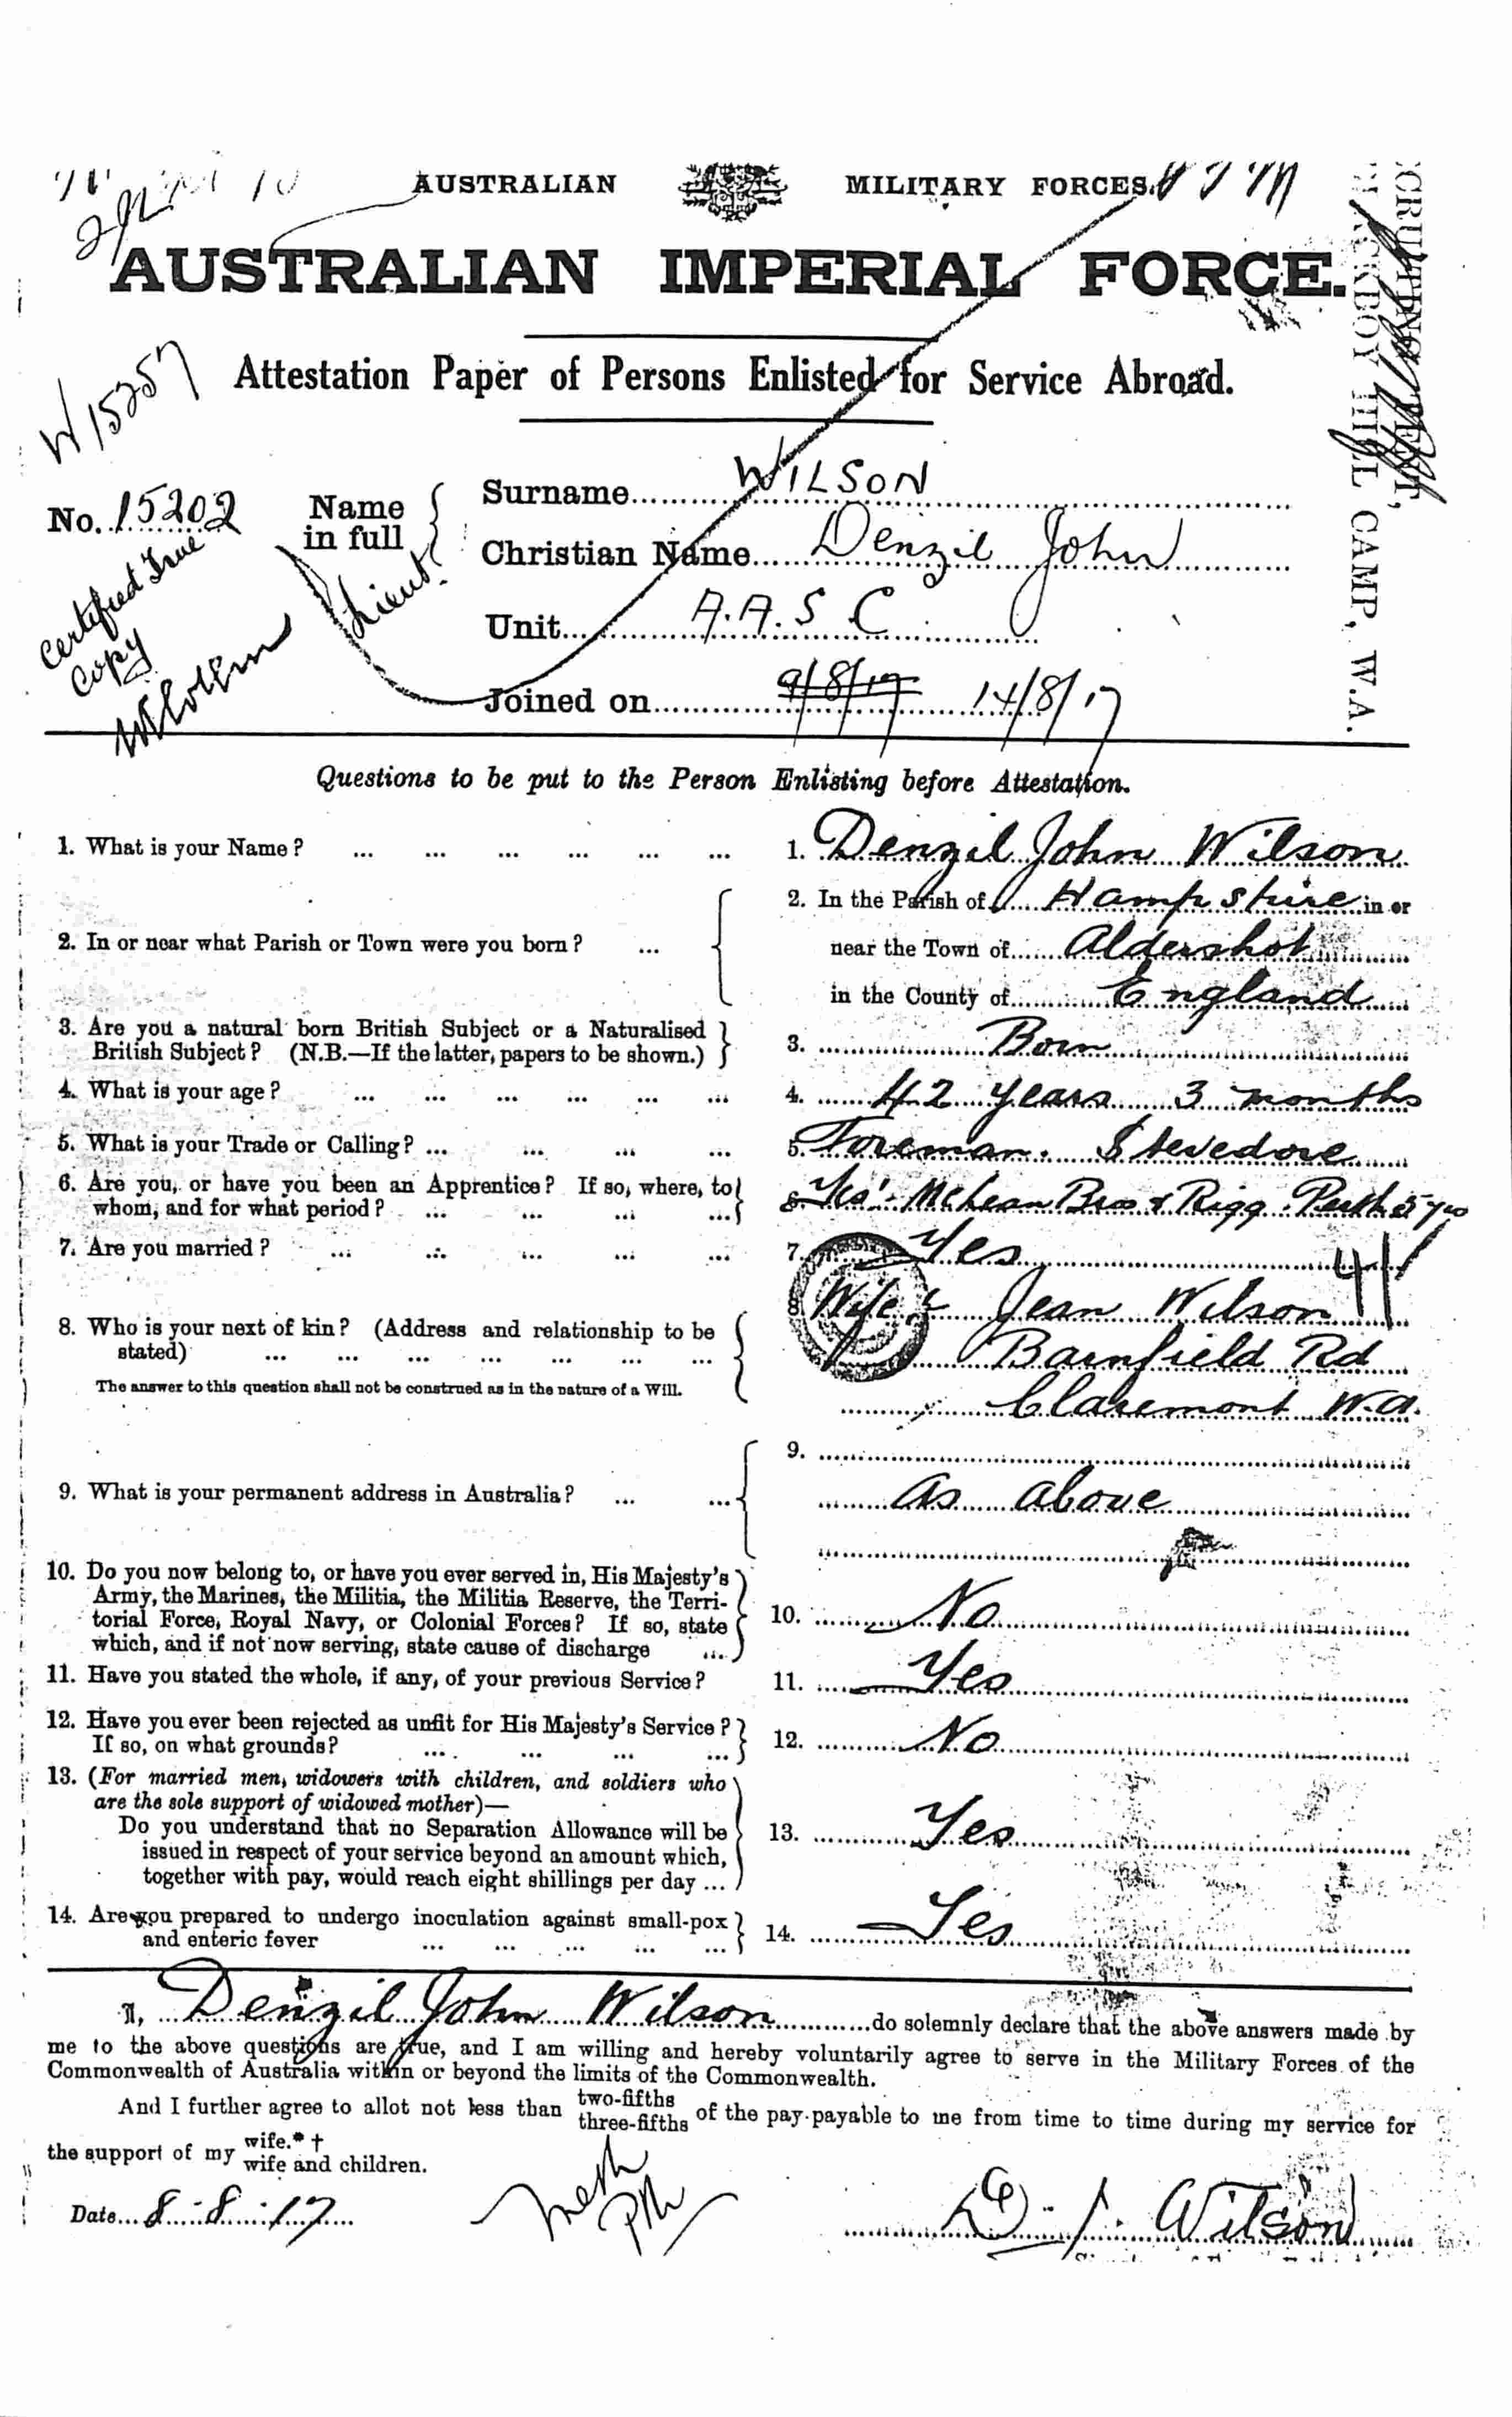 AUSTRALIAN MILITARY FORCES.
AUSTRALIAN IMPERIAL FORCE.
Attestation Paper of Persons Enlisted for Service Abroad.
W15257
No. 15202
Certified True
Copy
Name in full
Lieut.
Surname WILSON
Christian Name Denzil John
Unit A.A.S C
Joined on 9/8/17 14/8/17
HILL CAMP, W.A.
Questions to be put to the Person Enlisting before Attestation.
1. What is your Name? ... ... ... ... ... ... 1. Denzil John Wilson
2. In or near what Parish or Town were you born? ... 2. In the Parish of Hampshire in or
near the Town of Aldershot
in the County of England
3. Are you a natural born British Subject or a Naturalised
British Subject? (N.B.—If the latter, papers to be shown.) 3. Born
4. What is your age? ... ... ... ... ... ... 4. 42 years 3 months
5. What is your Trade or Calling? ... ... ... ... 5. Foreman Stevedore
6. Are you, or have you been an Apprentice? If so, where, to
whom, and for what period? ... ... ... ... 6. Yes. McLean Bros & Rigg Perth 5 yrs
7. Are you married? ... ... ... ... ... 7. Yes
41
8. Who is your next of kin? (Address and relationship to be
stated) ... ... ... ... ... ... ...
The answer to this question shall not be construed as in the nature of a Will.
8. Wife Jean Wilson
Barnfield Rd
Claremont W.A.
9. What is your permanent address in Australia? ... ... 9.
As above
10. Do you now belong to, or have you ever served in, His Majesty's
Army, the Marines, the Militia, the Militia Reserve, the Terri-
torial Force, Royal Navy, or Colonial Forces? If so, state
which, and if not now serving, state cause of discharge ... 10. No
11. Have you stated the whole, if any, of your previous Service? 11. Yes
12. Have you ever been rejected as unfit for His Majesty's Service?
If so, on what grounds? ... ... ... ... 12. No
13. (For married men, widowers with children, and soldiers who
are the sole support of widowed mother)—
Do you understand that no Separation Allowance will be
issued in respect of your service beyond an amount which,
together with pay, would reach eight shillings per day ... 13. Yes
14. Are you prepared to undergo inoculation against small-pox
and enteric fever ... ... ... ... ... 14. Yes
I, Denzil John Wilson do solemnly declare that the above answers made by
me to the above questions are true, and I am willing and hereby voluntarily agree to serve in the Military Forces of the
Commonwealth of Australia within or beyond the limits of the Commonwealth.
And I further agree to allot not less than two-fifths three-fifths of the pay payable to me from time to time during my service for
the support of my wife.* † wife and children.
Date 8-8-17
D. J. Wilson